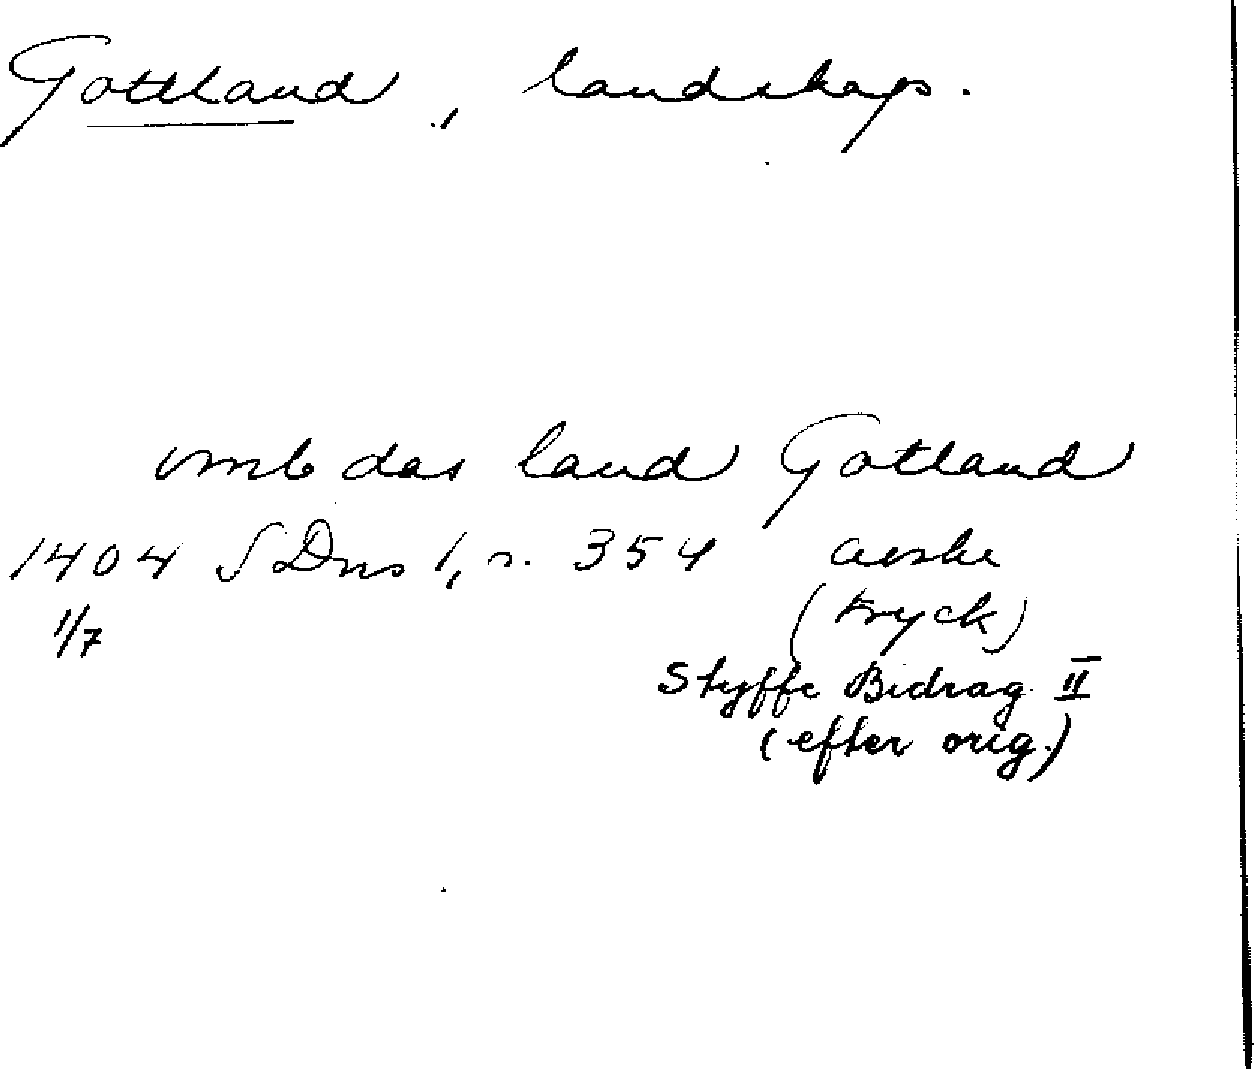 Gottland, landskap.
vmb das land Gotland
1404 SDns 1, n. 354 avskr
(tryck)
1/7
Styffe Bidrag II
(efter orig.)